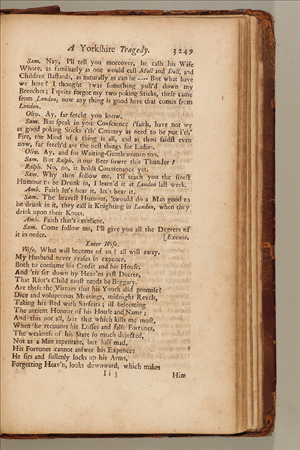 A Yorkshire Tragedy. 3249
Sam. Nay, I'll tell you moreover, he calls his Wife
Whore, as familiarly as one would call Moll and Doll, and
Children Bastards, as naturally as can be — But what have
we here? I thought 'twas something pull'd down my
Breeches; I quite forgot my two poking Sticks, these came
from London, now any thing is good here that comes from
London.
Oliv. Ay, far fetch'd you know.
Sam. But speak in your Conscience i'faith, have not we
as good poking Sticks i'th' Country as need to be put i'th'
Fire, the Mind of a thing is all, and as thou saidst even
now, far fetch'd are the best things for Ladies.
Oliv. Ay, and for Waiting-Gentlewomen too.
Sam. But Ralph, is our Beer sowre this Thunder?
Ralph. No, no, it holds Countenance yet.
Sam. Why then follow me, I'll teach you the finest
Humour to be Drunk in, I learn'd it at London last week.
Amb. Faith let's hear it, let's hear it.
Sam. The bravest Humour, 'twould do a Man good to
be drunk in it, they call it Knighting in London, when they
drink upon their Knees.
Amb. Faith that's excellent.
Sam. Come follow me, I'll give you all the Degrees of
it in order. [Exeunt.
Enter Wife.
Wife. What will become of us? all will away,
My Husband never ceases in expence,
Both to consume his Credit and his House,
And 'tis set down by Heav'ns just Decree,
That Riot's Child must needs be Beggary.
Are these the Virtues that his Youth did promise?
Dice and voluptuous Meetings, midnight Revels,
Taking his Bed with Surfeits; ill beseeming
The antient Honour of his House and Name;
And this not all, but that which kills me most,
When he recounts his Losses and false Fortunes,
The weakness of his State so much dejected,
Not as a Man repentant, but half mad,
His Fortunes cannot answer his Expence:
He sits and sullenly locks up his Arms,
Forgetting Heav'n, looks downward, which makes
Ii5 Him